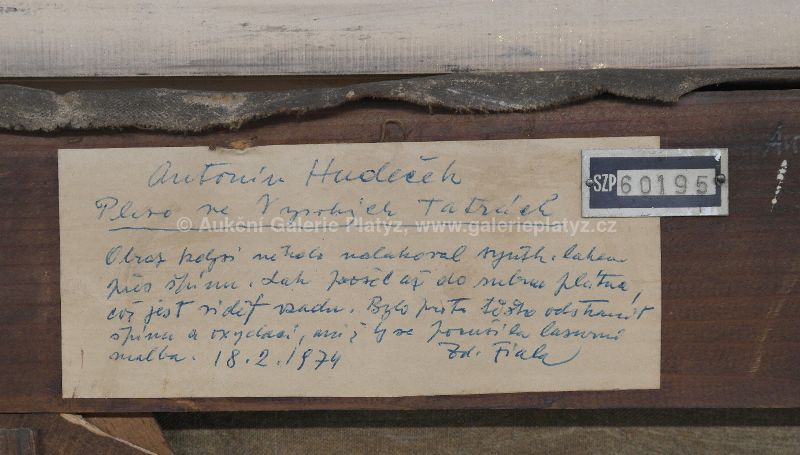 Antonín Hudeček
SZP 60195
Pleso ve Vysokých Tatrách
© Aukční Galerie Platýz, www.galerieplatyz.cz
Obraz kdysi někdo nalakoval synth. lakem
přes špínu. Lak prošel až do rubu plátna,
což jest vidět vzadu. Bylo proto těžko odstranit
špínu a oxydaci, aniž by se porušila lasurní
malba. 18.2.1974 Zd. Fiala